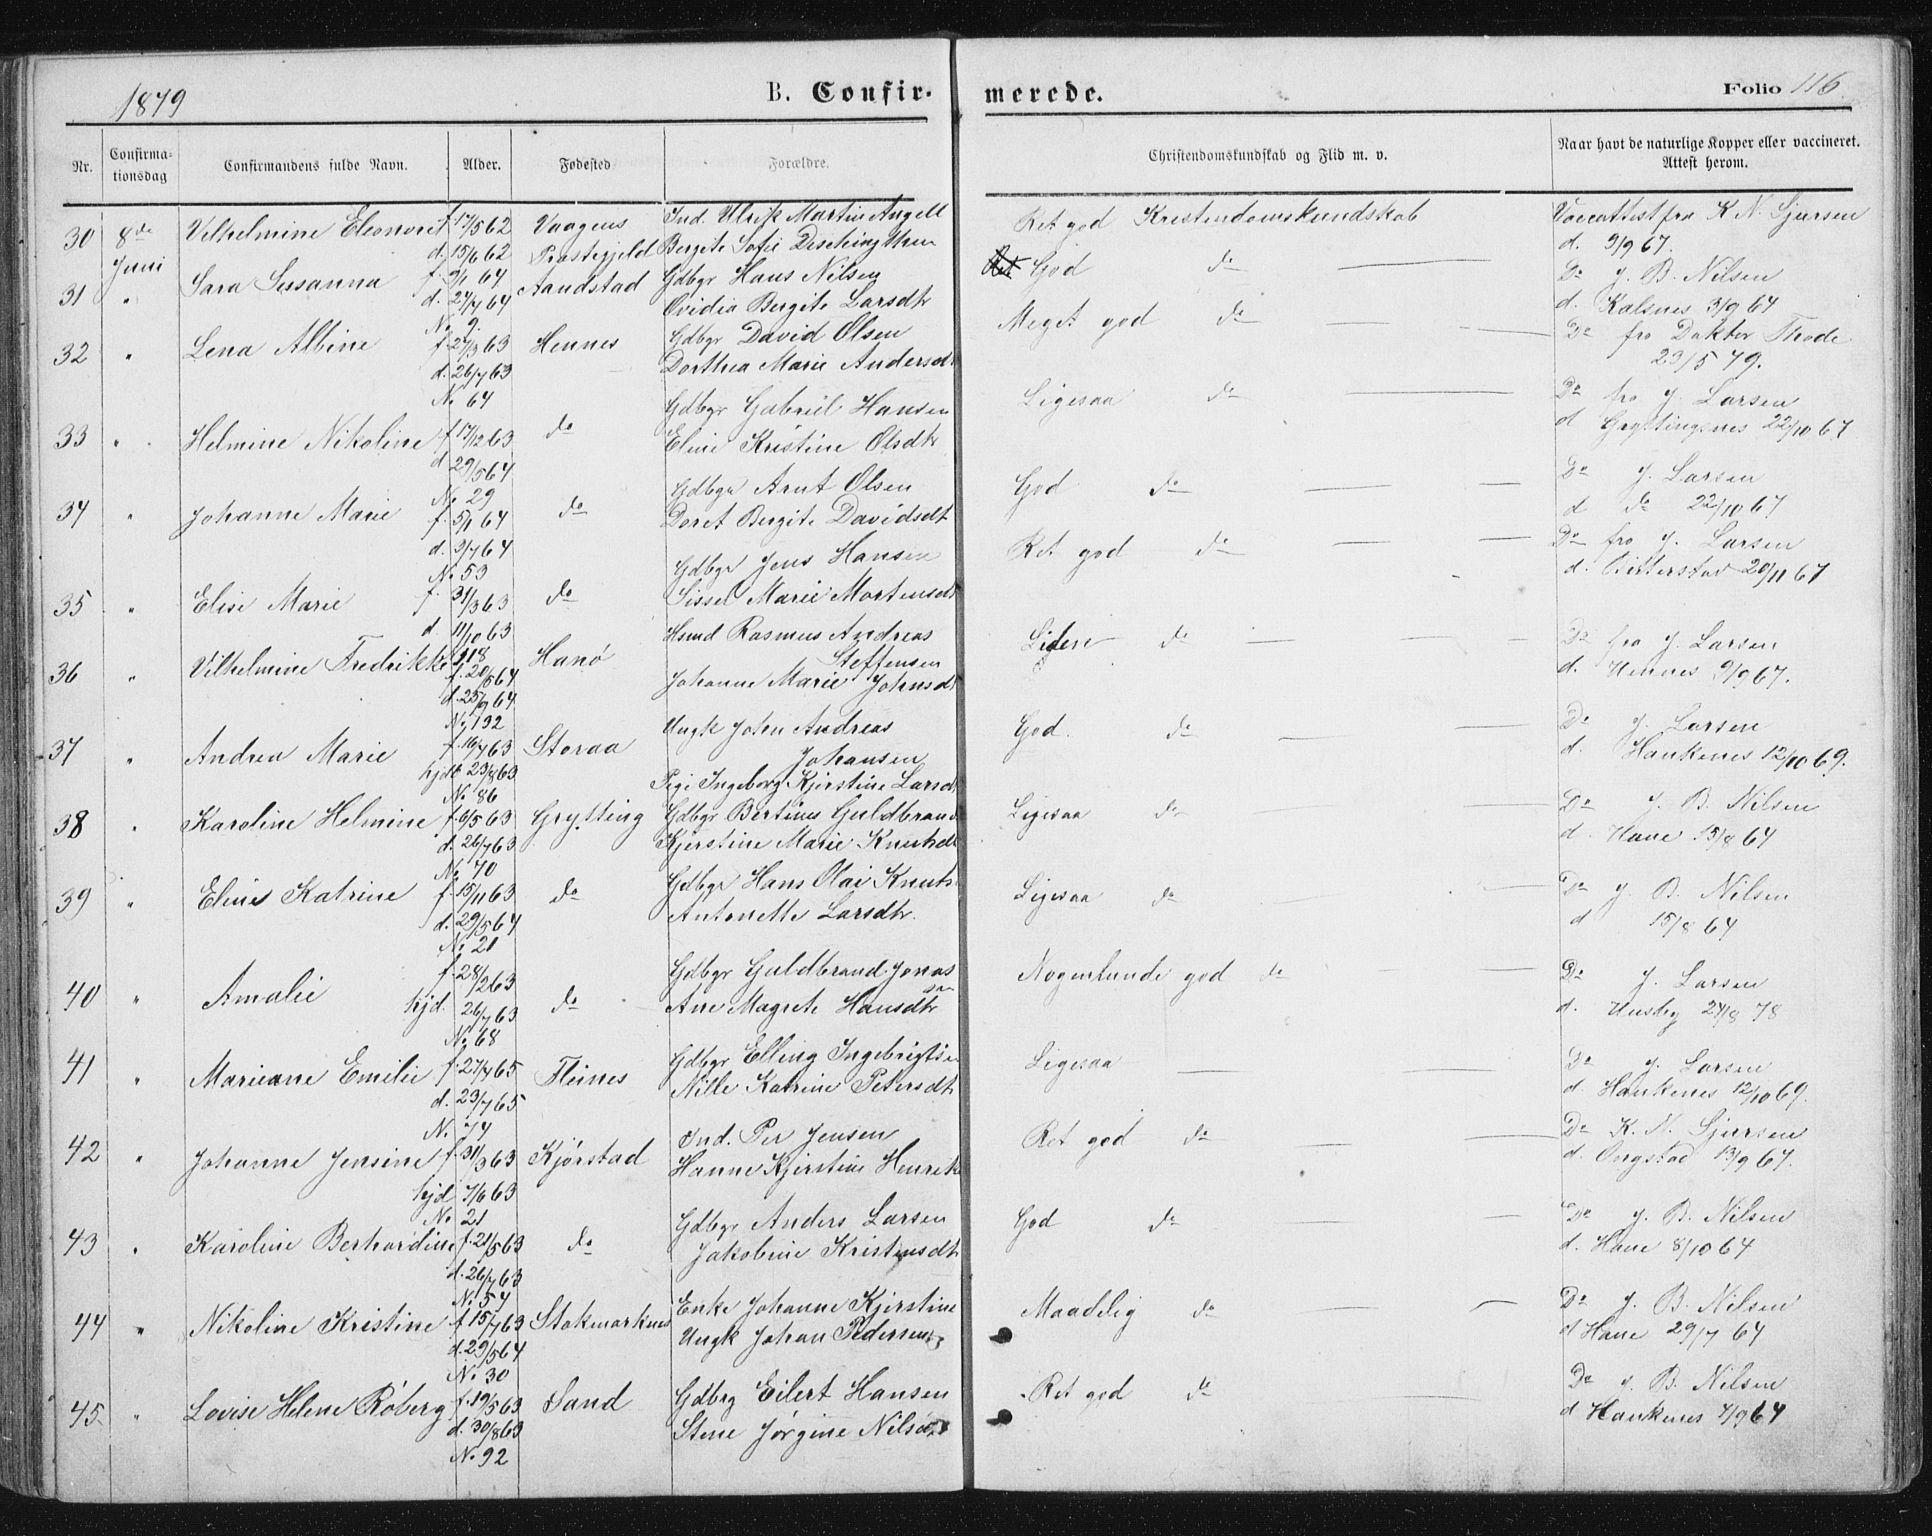 1879 B. Confir- merede. Folio 116.
Nr. Confirma-tionsdag Confirmandens fulde Navn. Alder. Fødested Forældre. Christendomskundskab og Flid m. v. Naar havt de naturlige Kopper eller vaccineret. Attest herom.
30 8de Juni Vilhelmine Eleonore f. 17/5 62 Vaagens Ind. Ulrik Martin Angell Ret god Kristendomskundskab Vaccattest fra K. N. Sjursen
d. 15/6 62 Præstegjeld Bergete Sofie d. 9/9 67.
31 " Sara Susanna f. 9/1 64 Aandstad Gdbgr Hans Nilsen God do Do J. B. Nilsen
d. 24/7 64 Ovidia Bergite Larsdtr d. Kalsnes 3/9 64
No 9.
32 " Lena Albine f. 27/3 63 Hennes Gdbgr David Olsen Meget god do Do fra Doktor Thode
d. 26/7 63 Dorthea Marie Andersdt 23/5 79.
No 64
33 " Helmine Nikoline f. 17/12 63 do Gdbgr Gabriel Hansen Ligesaa do Do fra J. Larsen
d 29/5 64 Eline Kristine Olsdtr d Gryttingsnes 22/10 67
No 29
34 " Johanne Marie f. 5/1 64 do Gdbgr Arnt Olsen God do Do J. Larsen
d. 3/7 64 Doret Bergite Davidsdt d do 22/10 67
No 53
35 " Elise Marie f. 31/3 63 do Gdbgr Jens Hansen Ret god do Do fra J. Larsen
d. 11/10 63 Sissel Marie Mortensdt d. Bitterstad 20/11 67
118
36 " Vilhelmine Fredrikke f. 20/5 64 Hanø Hsmd Rasmus Andreas Steffensen do Do fra J. Larsen
d. 25/9 64 Johanne Marie Johnsdt d. Hennes 9/9 67.
No 132
37 " Andrea Marie f. 16/7 63 Storaa Ungk John Andreas Johansen God. do Do J. Larsen
hjdb 23/8 63 Pige Ingeborg Kjerstine Larsdt d. Haukenes 12/10 69.
No 86
38 " Karoline Helmine f. 6/5 63 Grytting Gdbgr Bertinus Guldbrand Ligesaa do Do J. B. Nilsen
d. 26/7 63 Kjerstine Marie Knutsdt d. Hane 15/8 64
No 70
39 " Elines Katrine f. 15/11 63 do Gdbgr Hans Olai Knuts Ligesaa do Do J. B. Nilsen
d. 29/5 64 Antonette Larsdtr. d 15/8 64
No 21
40 " Amalie f. 28/2 63 do Gdbgr Guldbrand Jonas sen Nogenlunde god do Do J. Larsen
hjd. 26/7 63 Ane Magrete Hansdtr d. Husby 24/8 78
No 68
41 " Marieane Emilie f. 27/4 65 Fleines Gdbgr Elling Ingebrigtsen Ligesaa Do J. Larsen
d. 23/7 65 Nille Katrine Petersdtr d. Haukenes 12/10 69.
No 74
42 " Johanne Jensine f. 31/3 63 Kjørstad Ind. Per Jensen Ret god do Do K. N. Sjursen
hjd 7/6 63 Hanne Kjerstine Henrik d. Ongstad 13/9 67.
No 21
43 " Karoline Berhardine f. 21/5 63 do Gdbgr Anders Larsen God do Do J. B. Nilsen
d. 26/7 63 Jakobine Kristensdtr d. Hane 8/10 64
No 54
44 " Nikoline Kristine f. 15/7 63 Stokmarknes Enke Johanne Kjerstine Maadelig do Do J. B. Nilsen
d. 29/5 64 Ungk Johan Pedersen d Hane 29/7 64
No 30
45 " Lovise Helene Røberg f. 19/5 63 Sand Gdbrg Eilert Hansen Ret god do Do J. B. Nilsen
d. 30/8 63 Stene Jørgine Nilsd d Haukenes 4/9 64
No 92